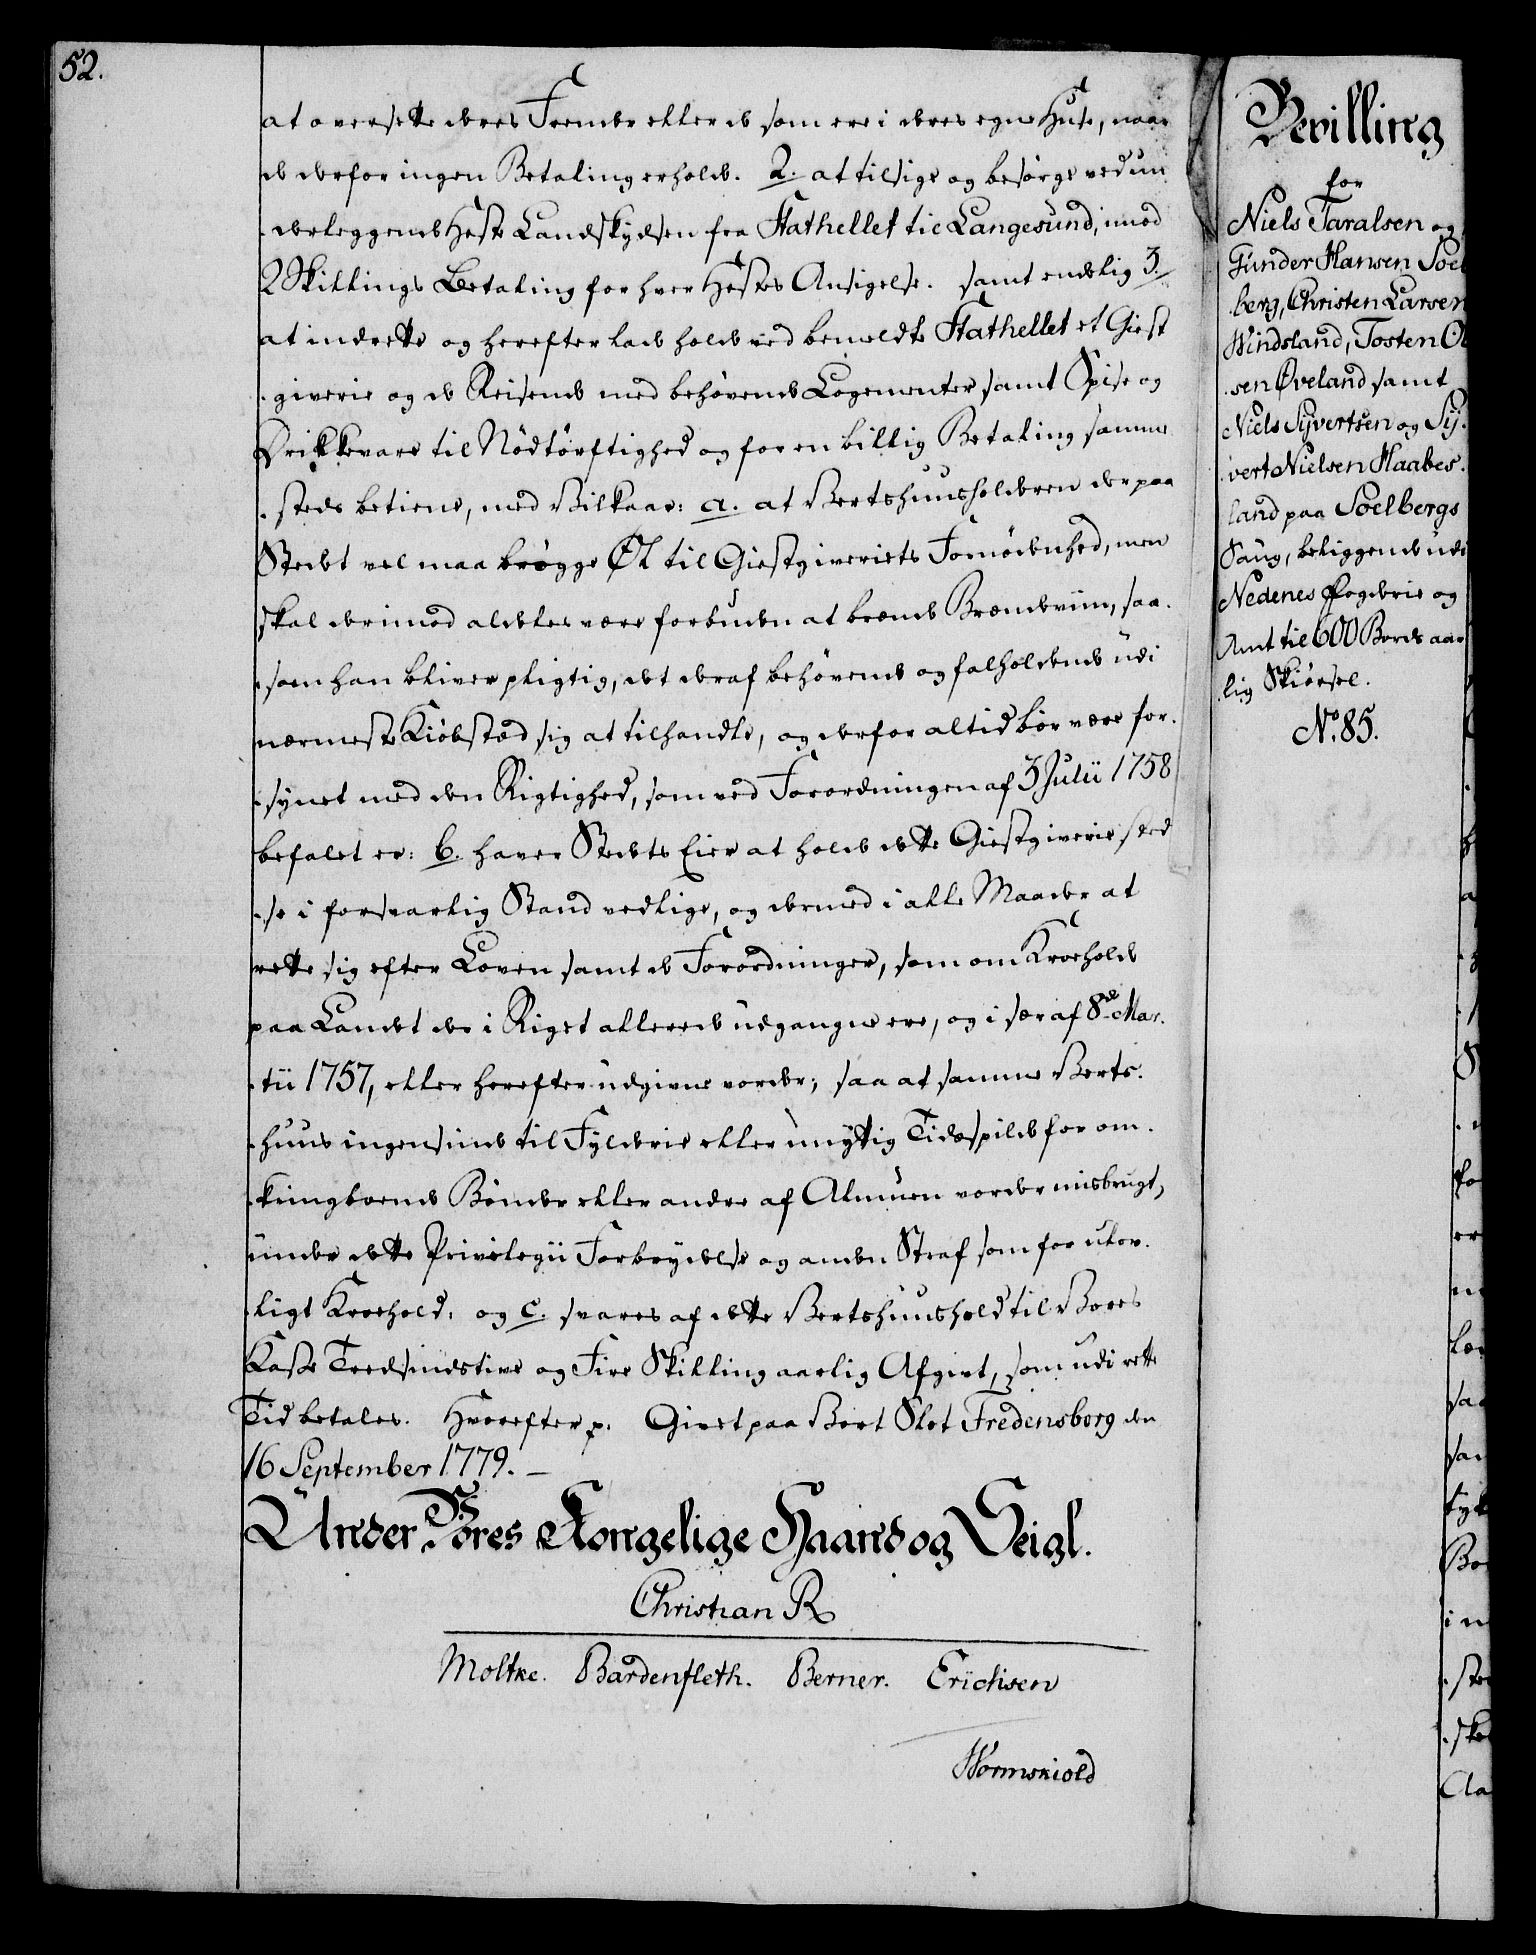 52.
at oversette deres Fremde eller de som ere i deres egne Huse, naar
de derfor ingen Betaling erholde. 2. at tilsige og besørge ved un
derleggende Heste Landskydsen fra Stathellet til Langesund, imod
2 Skillings Betaling for hver Hestes Ansigelse. samt endelig 3.
at indrette og herefter lade holde ved bemeldte Stathellet et Giest
giverie og de Reisende med behøvende Logementer samt Spise og
Drikkevare til Nödtörftighed og for en billig Betaling samme
steds betiene, med Vilkaar: a. at Vertshuusholderen der paa
Stedet vel maa brögge Øl til Giestgiveriets Fornödenhed, men
skal derimod aldeles være forbuden at brænde Brændeviin, saa
som han bliver pligtig, det deraf behøvende og falholdende udi
nærmeste Kiöbstæd sig at tilhandle, og derfor altid bör være for
synet med den Rigtighed, som ved Forordningen af 3 Julii 1758
befalet er: b. haver Stedets Eier at holde dette Giestgiverie sted
se i forsvarlig Stand vedlige, og dermed i alle Maader at
rette sig efter Loven samt de Forordninger, som om Kroehold
paa Landet der i Riget allerede udgangne ere, og i sær af 8de Mar
tii 1757, eller herefter udgivne vorder; saa at samme Verts
huus ingensinde til Fylderie eller unyttig Tidsspilde for om
kringboende Bönder eller andre af Almuen vorder misbrugt,
under dette Privilegii Forbrydelse og anden Straf som for ulov
ligt Kroehold. og c. svares af dette Vertshuushold til Vores
Kasse Tredsindstive og Fire Skilling aarlig Afgivt, som udi rette
Tid betales. Hvorefter p. Givet paa Vort Slot Fredensborg den
16 September 1779. —
Under Vores Kongelige Haand og Seigl.
Christian R
Moltke. Bardenfleth. Berner. Erichsen
Wormskiold
Bevilling
for
Niels Taralsen og
Gunder Hansen Soel
berg, Christen Larsen
Windsland, Tosten Ol
sen Øveland samt
Niels Syvertsen og Sy
vert Nielsen Haabes
land paa Soelbergs
Saug, beliggende udi
Nedenes Fogderie og
Amt til 600 Bords aar
lig Skiørsel.
No. 85.